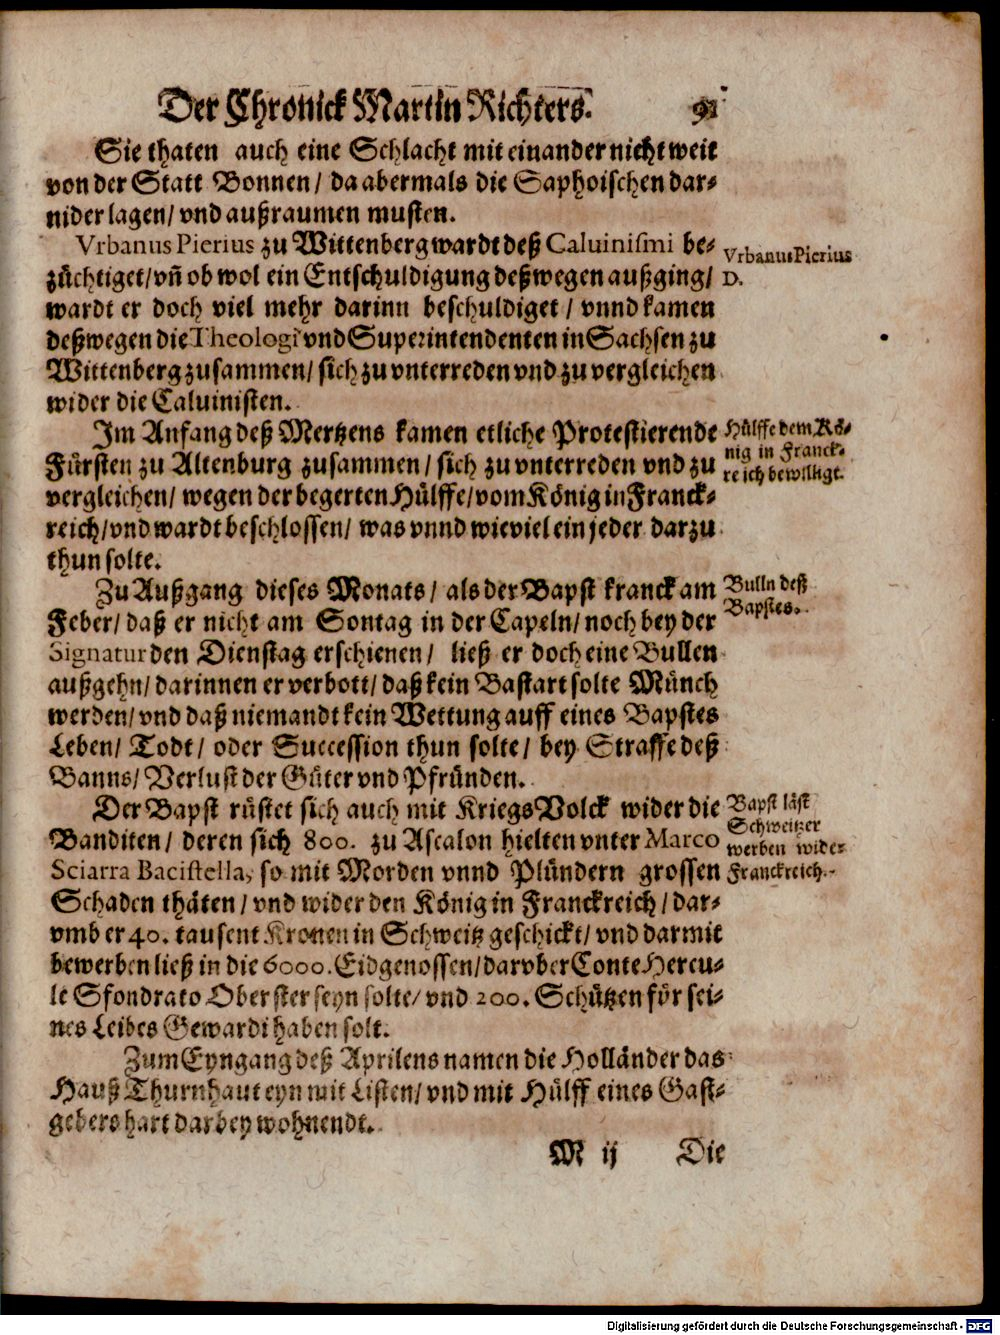 Der Chronick Martin Richters. 91
Sie thaten auch eine Schlacht mit einander nicht weit
von der Statt Bonnen / da abermals die Saphoischen dar-
nider lagen / vnd außraumen musten.
Vrbanus Pierius zu Wittenberg wardt deß Caluinismi be-
züchtiget / vñ ob wol ein Entschuldigung deßwegen außging /
wardt er doch viel mehr darinn beschuldiget / vnnd kamen
deßwegen die Theologi vnd Superintendenten in Sachsen zu
Wittenberg zusammen / sich zu vnterreden vnd zu vergleichen
wider die Caluinisten.
Vrbanus Pierius
D.
Im Anfang deß Mertzens kamen etliche Protestierende
Fürsten zu Altenburg zusammen / sich zu vnterreden vnd zu
vergleichen / wegen der begerten Hülffe / vom König in Franck-
reich / vnd wardt beschlossen / was vnnd wieviel ein jeder darzu
thun solte.
Hülffe dem Kö-
nig in Franck-
reich bewilligt.
Zu Außgang dieses Monats / als der Bapst kranck am
Feber / daß er nicht am Sontag in der Capeln / noch bey der
Signatur den Dienstag erschienen / ließ er doch eine Bullen
außgehn / darinnen er verbott / daß kein Bastart solte Münch
werden / vnd daß niemandt kein Wettung auff eines Bapstes
Leben / Todt / oder Succession thun solte / bey Straffe deß
Banns / Verlust der Güter vnd Pfründen.
Bulln deß
Bapstes.
Der Bapst rüstet sich auch mit KriegsVolck wider die
Banditen / deren sich 800. zu Ascalon hielten vnter Marco
Sciarra Bacistella, so mit Morden vnnd Plündern grossen
Schaden thäten / vnd wider den König in Franckreich / dar-
vmb er 40. tausent Kronen in Schweitz geschickt / vnd darmit
bewerben ließ in die 6000. Eidgenossen / darvber Conte Hercu-
le Sfondrato Oberster seyn solte / vnd 200. Schützen för sei-
nes Leibes Gewardi haben solt.
Bapst läst
Schweitzer
werben wider
Franckreich.
Zum Eyngang deß Aprilens namen die Holländer das
Hauß Thurnhaut eyn mit Listen / vnd mit Hülff eines Gast-
gebers hart darbey wohnendt.
M ij Die
Digitalisierung gefördert durch die Deutsche Forschungsgemeinschaft - DFG